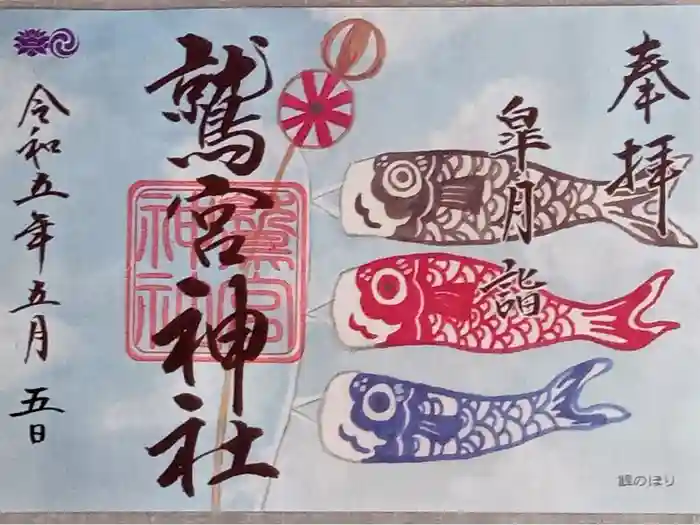 奉拝
皐月詣
鷲宮神社
鷲宮
神社
令和五年五月五日
鯉のぼり